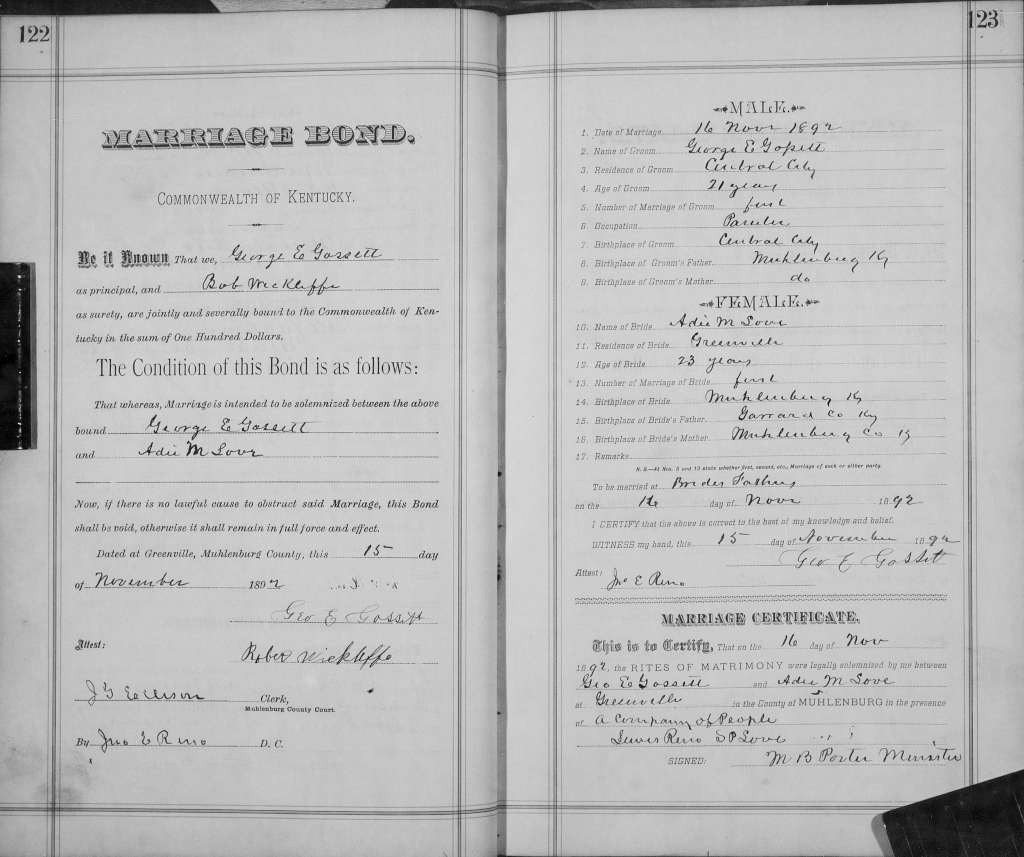 122
MARRIAGE BOND.
COMMONWEALTH OF KENTUCKY.
Be it Known That we, George E Gossett
as principal, and Bob Wickliffe
as surety, are jointly and severally bound to the Commonwealth of Ken-
tucky in the sum of One Hundred Dollars.
The Condition of this Bond is as follows:
That whereas, Marriage is intended to be solemnized between the above
bound George E Gossett
and Adie M Love
Now, if there is no lawful cause to obstruct said Marriage, this Bond
shall be void, otherwise it shall remain in full force and effect.
Dated at Greenville, Muhlenburg County, this 15 day
of November 1892
Geo E Gossett
Attest:
Rober Wickliffe
Clerk,
Muhlenburg County Court.
By Jno E Reno D. C.
123
MALE.
1. Date of Marriage 16 Novr 1892
2. Name of Groom George E Gossett
3. Residence of Groom Central City
4. Age of Groom 21 years
5. Number of Marriage of Groom first
6. Occupation Painter
7. Birthplace of Groom Central City
8. Birthplace of Groom's Father Muhlenburg Ky
9. Birthplace of Groom's Mother do
FEMALE.
10. Name of Bride Adie M Love
11. Residence of Bride Greenville
12. Age of Bride 23 years
13. Number of Marriage of Bride first
14. Birthplace of Bride Muhlenburg Ky
15. Birthplace of Bride's Father Garrard Co Ky
16. Birthplace of Bride's Mother Muhlenburg Co Ky
17. Remarks
N. B.—At Nos. 5 and 13 state whether first, second, etc., Marriage of each or either party.
To be married at Brides Fathers
on the 16 day of Novr 1892
I CERTIFY that the above is correct to the best of my knowledge and belief.
WITNESS my hand, this 15 day of November 1892
Geo E Gossett
Attest:
Jno E Reno
MARRIAGE CERTIFICATE.
This is to Certify, That on the 16 day of Nov
1892, the RITES OF MATRIMONY were legally solemnized by me between
Geo E Gossett and Adie M Love
at Greenville in the County of MUHLENBURG in the presence
of A Company of People
Lewis Reno S P Love
SIGNED: M B Porter Minister